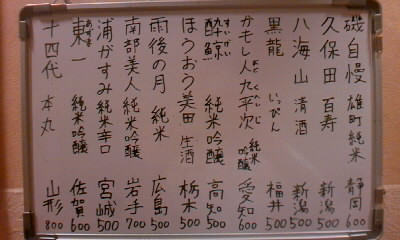 磯自慢 雄町純米 静岡 600
久保田 百寿 新潟 500
八海山 清酒 新潟 500
黒龍 いっぴん 福井 500
かもし人九平次 くへいじ 純米吟醸 愛知 600
酔鯨 すいげい 純米吟醸 高知 500
ほうおう美田 生酒 栃木 500
雨後の月 純米 広島 500
南部美人 純米吟醸 岩手 700
浦がすみ 純米辛口 宮城 500
東一 あずま 純米吟醸 佐賀 600
十四代 本丸 山形 800